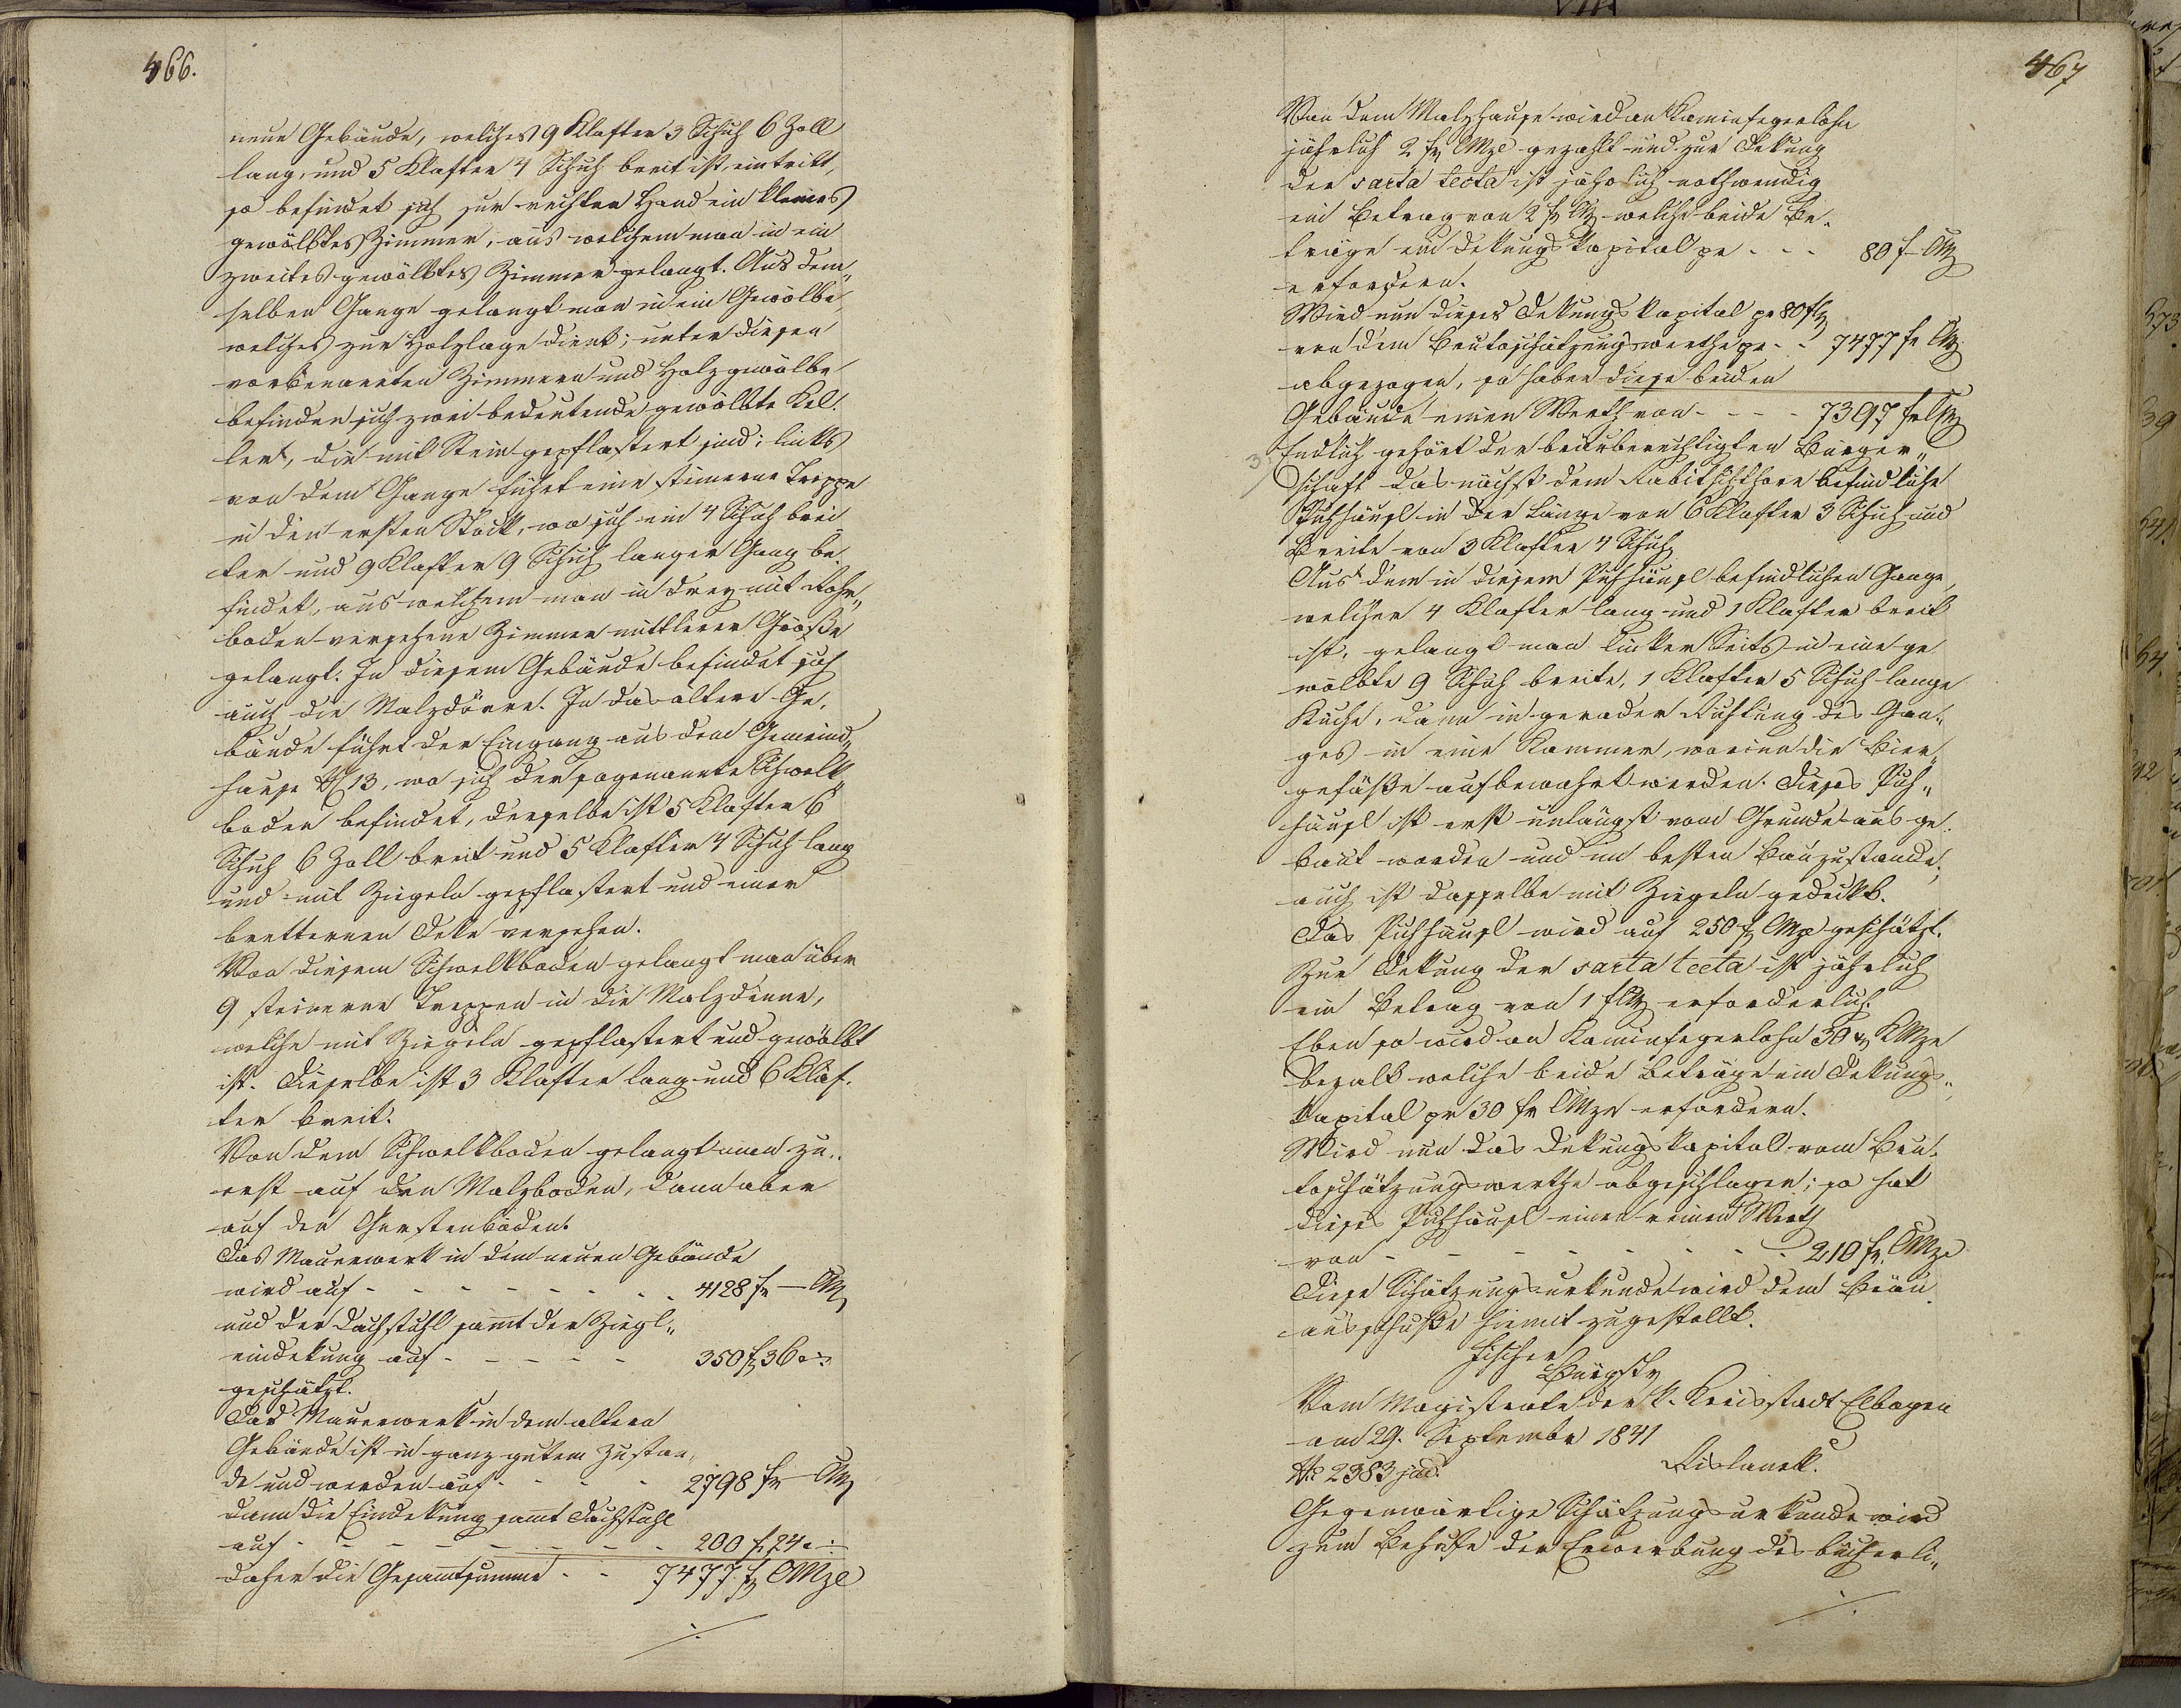 466.
neue Gebäude, welches 9 Klafter 3 Schuh 6 Zoll
lang, und 5 Klafter 4 Schuh breit ist, eintritt,
so befindet sich zur rechten Hand ein kleines
gewölbtes Zimmer, aus welchem man in ein
zweites gewölbtes Zimmer gelangt. Aus dem„
selben Gange gelangt man in ein Gewölbe,
welches zur Holzlage dient; unter diesen
vorbenannten Zimmern und Holzgewölbe
befinden sich zwei bedeutende gewölbte Kel.
ler, die mit Stein gepflastert sind; links
von dem Gange führt eine steinerne Treppe
in den ersten Stock, wo sich ein 4 Schuh brei
ter und 9 Klafter 9 Schuh langer Gang be.
findet, aus welchem man in drey mit Rohr„
boden versehene Zimmer mittlerer Größe
gelangt. In diesem Gebäude befindet sich
auch die Malzdörre. In das ältere Ge.
bäude führt der Eingang aus dem Gemeind„
hause N 13, wo sich der sogenannte Schwelk„
boden befindet, derselbe ist 5 Klafter 6
Schuh 6 Zoll breit und 5 Klafter 4 Schuh lang
und mit Ziegeln gepflastert und einer
bretternen Deke versehen.
Von diesem Schwelkboden gelangt man über
9 steinerne Treppen in die Malztenne,
welche mit Ziegeln gepflastert und gewölbt
ist. Dieselbe ist 3 Klafter lang und 6 Klaf.
ter breit.
Von dem Schwelkboden gelangt man zu..
erst auf den Malzboden, dann aber
auf den Gerstenboden.
Das Mauerwerk in dem neuen Gebäude
wird auf - - - - - - - - 4128 fr — CM
und der Dachstuhl samt der Ziegl„
eindekung auf - - - - - 350 f 36
geschätzt.
Das Mauerwerk in dem altern
Gebäude ist in ganz gutem Zustan„
de und werden auf - - - - 2798 fr — CM
dann die Eindekung samt Dachstuhl
auf - - - - - - - - - 200 f 24
daher die Gesamtsumme - - 7477 f CMze
./.
467
Von dem Malzhause wird an Kaminfegerlohn
jährlich 2 fr CMze gezahlt und zur Dekung
der sarta tecta ist jährlich nothwendig
ein Betrag von 2 fr CM welche beide Be.
träge ein Dekungskapital pr - - - 80 f — CM
erfordern.
Wird nun dieses Dekungskapital pr 80 f
von dem Brutoschätzungswerthe pr - - 7477 fr CM
abgezogen, so haben diese beiden
Gebäude einen Werth von - - - - 7397 fr CM
3. Endlich gehört der bräuberechtigten Bürger„
schaft das nächst dem befindliche
häusl in der Länge von 6 Klafter 3 Schuh und
Breite von 3 Klafter 4 Schuh
Aus dem in diesem häusl befindlichen Gange,
welcher 4 Klafter lang und 1 Klafter breit
ist, gelangt man linker Seits in eine ge
wölbte 9 Schuh breite, 1 Klafter 5 Schuh lange
Küche, dann in gerader Richtung des Gan„
ges in eine Kammer, worinn die Bier„
gefäße aufbewahrt werden. Dieses
häusl ist erst unlängst vom Grunde aus ge.
baut worden und im besten Bauzustande,
auch ist dasselbe mit Ziegeln gedeckt.
Das häusl wird auf 250 f CMze geschätzt.
Zur Dekung der sarta tecta ist jährlich
ein Betrag von 1 f CM erforderlich.
Eben so wird an Kaminfegerlohn 30 x CMze
bezalt welche beide Beträge ein Dekungs„
kapital pr 30 fr CMze erfordern.
Wird nun das Dekungskapital vom Bru.
toschätzungswerthe abgeschlagen; so hat
dieses häusl einen reinen Werth
von - - - - - - - - - 210 fr. CMze
Diese Schätzungsurkunde wird dem Bräu
ausschuße hiemit zugestellt.
Fischer
Bürgstr
Vom Magistrate der k. Kreisstadt Elbogen
am 29. Septembr 1841
No 2383 jud.
Gegenwärtige Schätzungsurkunde wird
zum Behufe der Erwerbung des bücherli„
./.